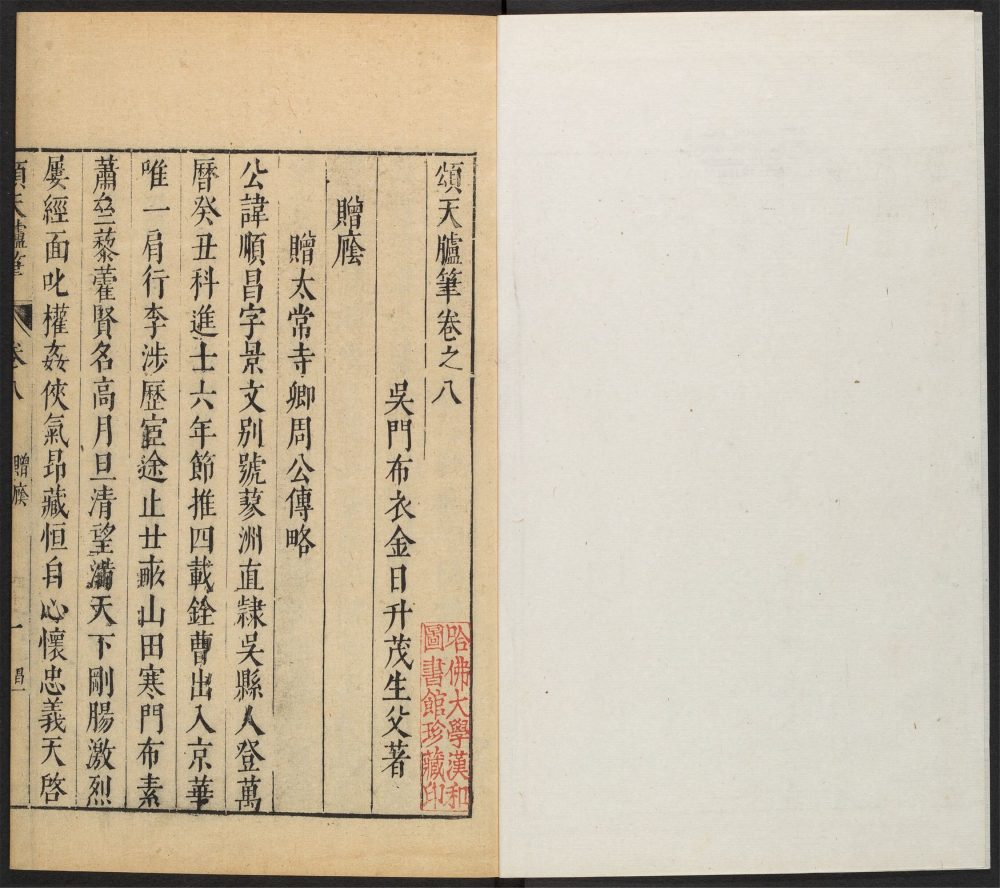 頌天臚筆卷之八
吳門布衣金日升茂生父著
贈廕
贈太常寺卿周公傳略
公諱順昌字景文别號蓼洲直隸吳縣人登萬
曆癸丑科進士六年節推四載銓曹出入京華
唯一肩行李涉歷宦途止廿畝山田寒門布素
蕭然藜藿賢名高月旦清望滿天下剛腸激烈
屡經面叱權姦俠氣昂藏恒自心懷忠義天啓
頌天臚筆
卷八
贈廕
一
哈佛大學漢和
圖書館珍藏印